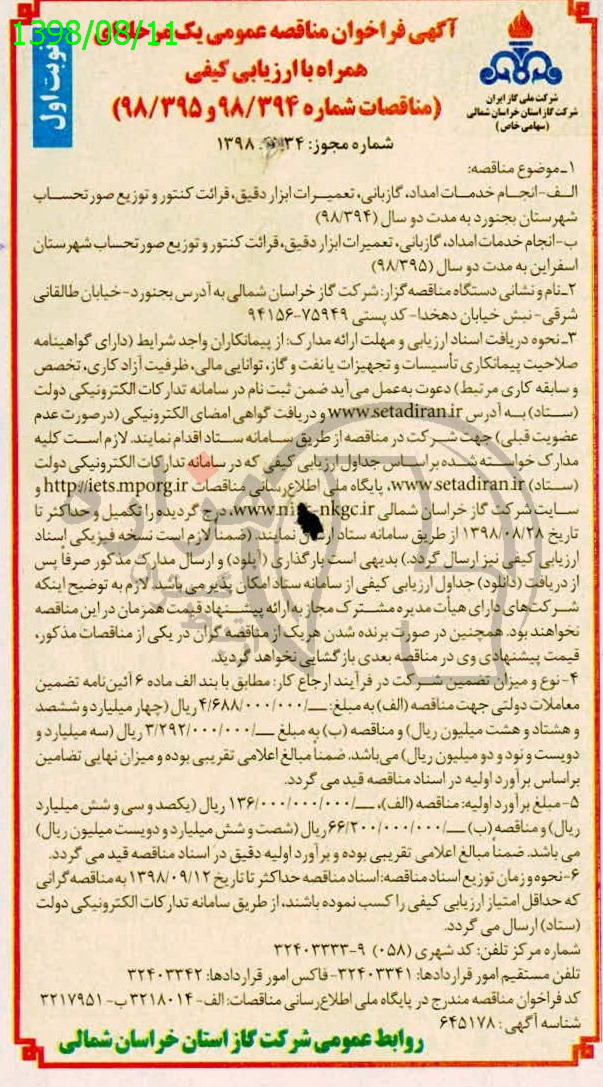 1398/08/11
آگهی فراخوان مناقصه عمومی یک مرحله‌ای
همراه با ارزیابی کیفی
(مناقصات شماره ۹۸/۳۹۴ و ۹۸/۳۹۵)
نوبت اول
شرکت ملی گاز ایران
شرکت گاز استان خراسان شمالی
(سهامی خاص)
شماره مجوز: ۱۳۹۸.
۱-موضوع مناقصه:
الف-انجام خدمات امداد، گازبانی، تعمیرات ابزار دقیق، قرائت کنتور و توزیع صورتحساب
شهرستان بجنورد به مدت دو سال (۹۸/۳۹۴)
ب-انجام خدمات امداد، گازبانی، تعمیرات ابزار دقیق، قرائت کنتور و توزیع صورتحساب شهرستان
اسفراین به مدت دو سال (۹۸/۳۹۵)
۲-نام و نشانی دستگاه مناقصه گزار: شرکت گاز خراسان شمالی به آدرس بجنورد-خیابان طالقانی
شرقی-نبش خیابان دهخدا-کد پستی ۷۵۹۴۹-۹۴۱۵۶
۳-نحوه دریافت اسناد ارزیابی و مهلت ارائه مدارک: از پیمانکاران واجد شرایط (دارای گواهینامه
صلاحیت پیمانکاری تأسیسات و تجهیزات یا نفت و گاز، توانایی مالی، ظرفیت آزاد کاری، تخصص
و سابقه کاری مرتبط) دعوت به‌عمل می‌آید ضمن ثبت نام در سامانه تدارکات الکترونیکی دولت
(ستاد) به آدرس www.setadiran.ir و دریافت گواهی امضای الکترونیکی (درصورت عدم
عضویت قبلی) جهت شرکت در مناقصه از طریق سامانه ستاد اقدام نمایند. لازم است کلیه
مدارک خواسته شده براساس جداول ارزیابی کیفی که در سامانه تدارکات الکترونیکی دولت
(ستاد) www.setadiran.ir، پایگاه ملی اطلاع‌رسانی مناقصات http://iets.mporg.ir و
سایت شرکت گاز خراسان شمالی www.nigc-nkgc.ir، درج گردیده را تکمیل و حداکثر تا
تاریخ ۱۳۹۸/۰۸/۲۸ از طریق سامانه ستاد ارسال نمایند. (ضمنا لازم است نسخه فیزیکی اسناد
ارزیابی کیفی نیز ارسال گردد.) بدیهی است بارگذاری (آپلود) و ارسال مدارک مذکور صرفاً پس
از دریافت (دانلود) جداول ارزیابی کیفی از سامانه ستاد امکان پذیر می باشد. لازم به توضیح اینکه
شرکت‌های دارای هیأت مدیره مشترک مجاز به ارائه پیشنهاد قیمت همزمان در این مناقصه
نخواهند بود. همچنین در صورت برنده شدن هریک از مناقصه گران در یکی از مناقصات مذکور،
قیمت پیشنهادی وی در مناقصه بعدی بازگشایی نخواهد گردید.
۴-نوع و میزان تضمین شرکت در فرآیند ارجاع کار: مطابق با بند الف ماده ۶ آئین‌نامه تضمین
معاملات دولتی جهت مناقصه (الف) به مبلغ: ــ/۴/۶۸۸/۰۰۰/۰۰۰ ریال (چهار میلیارد و ششصد
و هشتاد و هشت میلیون ریال) و مناقصه (ب) به مبلغ ــ/۳/۲۹۲/۰۰۰/۰۰۰ ریال (سه میلیارد و
دویست و نود و دو میلیون ریال) می‌باشد. ضمناً مبالغ اعلامی تقریبی بوده و میزان نهایی تضامین
براساس برآورد اولیه در اسناد مناقصه قید می گردد.
۵-مبلغ برآورد اولیه: مناقصه (الف)، ــ/۱۳۶/۰۰۰/۰۰۰/۰۰۰ ریال (یکصد و سی و شش میلیارد
ریال) و مناقصه (ب) ــ/۶۶/۲۰۰/۰۰۰/۰۰۰ ریال (شصت و شش میلیارد و دویست میلیون ریال)
می باشد. ضمناً مبالغ اعلامی تقریبی بوده و برآورد اولیه دقیق در اسناد مناقصه قید می گردد.
۶-نحوه و زمان توزیع اسناد مناقصه: اسناد مناقصه حداکثر تا تاریخ ۱۳۹۸/۰۹/۱۲ به مناقصه گرانی
که حداقل امتیاز ارزیابی کیفی را کسب نموده باشند، از طریق سامانه تدارکات الکترونیکی دولت
(ستاد) ارسال می گردد.
شماره مرکز تلفن: کد شهری (۰۵۸) ۹-۳۲۴۰۳۳۳۳
تلفن مستقیم امور قراردادها: ۳۲۴۰۳۳۴۱-فاکس امور قراردادها: ۳۲۴۰۳۳۴۲
کد فراخوان مناقصه مندرج در پایگاه ملی اطلاع‌رسانی مناقصات: الف-۳۲۱۸۰۱۴ ب-۳۲۱۷۹۵۱
شناسه آگهی: ۶۴۵۱۷۸
روابط عمومی شرکت گاز استان خراسان شمالی